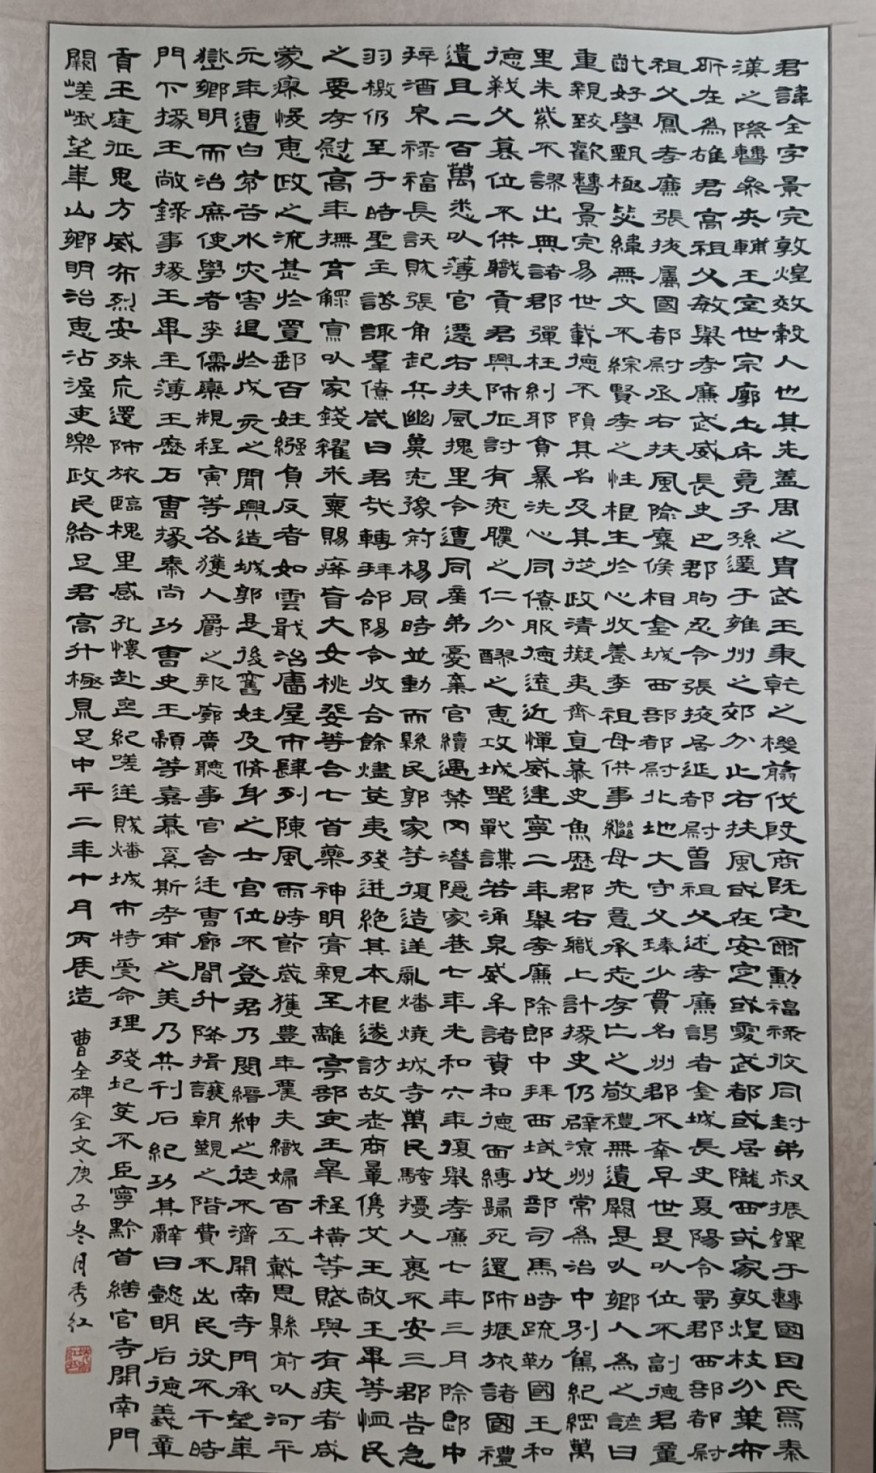 君諱全字景完敦煌效穀人也其先蓋周之胄武王秉乾之機翦伐殷商既定爾勳福祿攸同封弟叔振鐸于曹國因氏焉秦
漢之際曹參夾輔王室世宗廓土斥竟子孫遷于雍州之郊分止右扶風或在安定或處武都或居隴西或家敦煌枝分葉布
所在為雄君高祖父敏舉孝廉武威長史巴郡朐忍令張掖居延都尉曾祖父述孝廉謁者金城長史夏陽令蜀郡西部都尉
祖父鳳孝廉張掖屬國都尉丞右扶風隃麋侯相金城西部都尉北地大守父琫少貫名州郡不幸早世是以位不副德君童
齔好學甄極毖緯無文不綜賢孝之性根生於心收養季祖母供事繼母先意承志存亡之敬禮無遺闕是以鄉人為之諺曰
重親致歡曹景完易世載德不隕其名及其從政清擬夷齊直慕史魚歷郡右職上計掾史仍辟涼州常為治中別駕紀綱萬
里朱紫不謬出典諸郡彈枉糾邪貪暴洗心同僚服德遠近憚威建寧二年舉孝廉除郎中拜西域戊部司馬時疏勒國王和
德弒父篡位不供職貢君興師征討有兗膿之仁分醪之惠攻城野戰謀若涌泉威牟諸賁和德面縛歸死還師振旅諸國禮
遺且二百萬悉以薄官遷右扶風槐里令遭同產弟憂棄官續遇禁罔潛隱家巷七年光和六年復舉孝廉七年三月除郎中
拜酒泉祿福長訞賊張角起兵幽冀兗豫荊楊同時並動而縣民郭家等復造逆亂燔燒城寺萬民騷擾人裹不安三郡告急
羽檄仍至于時聖主諮諏群僚咸曰君哉轉拜郃陽令收合餘燼芟夷殘迸絕其本根遂訪故老商量儁艾王敞王畢等恤民
之要存慰高年撫育鰥寡以家錢糴米粟賜癃盲大女桃婓等合七首藥神明膏親至離亭部吏王皋程橫等賦與有疾者咸
蒙瘳悛惠政之流甚於置郵百姓繈負反者如雲戢治廧屋市肆列陳風雨時節歲獲豐年農夫織婦百工戴恩縣前以河平
元年遭白茅谷水災害退於戊亥之間興造城郭是後舊姓及脩身之士官位不登君乃閔縉紳之徒不濟開南寺門承望華
嶽鄉明而治庶使學者李儒欒規程寅等各獲人爵之報廓廣聽事官舍廷曹廊閤升降揖讓朝覲之階費不出民役不干時
門下掾王敞錄事掾王畢主薄王歷戶曹掾秦尚功曹史王顓等嘉慕奚斯考甫之美乃共刊石紀功其辭曰懿明后德義章
貢王庭征鬼方威布烈安殊荒還師旅臨槐里感孔懷赴喪紀嗟逆賊燔城市特受命理殘圮芟不臣寧黔首繕官寺開南門
闕嵯峨望華山鄉明治惠沾渥吏樂政民給足君高升極鼎足中平二年十月丙辰造 曹全碑全文庚子冬月秀紅